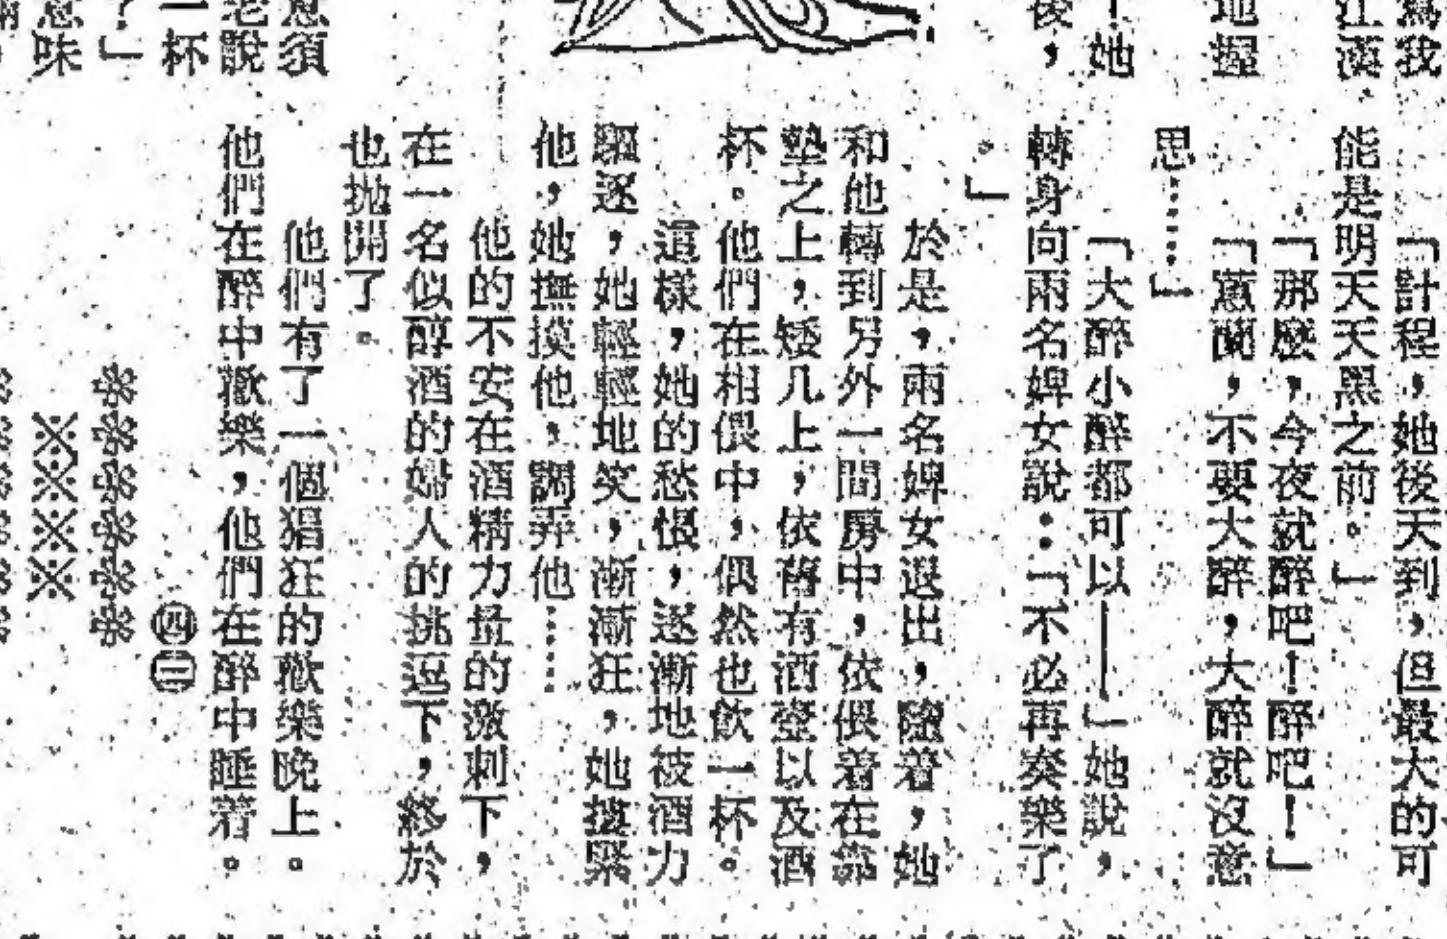 爲我
江湖
地握
！她
後，
「計程，她後天到，但最大的可
能是明天天黑之前。」
「那麼，今夜就醉吧！醉吧！」
「蕙蘭，不要大醉，大醉就沒意
思……」
「大醉小醉都可以——」她說，
轉身向兩名婢女說：「不必再奏樂了
。」
於是，兩名婢女退出，隨着，她
和他轉到另外一間房中，依偎着在靠
墊之上，矮几上，依舊有酒壺以及酒
杯。他們在相偎中，偶然也飲一杯。
這樣，她的愁恨，逐漸地被酒力
驅逐，她輕輕地笑，漸漸狂，她摟緊
他，她撫摸他，調弄他……
他的不安在酒精力量的激刺下，
在一名似醇酒的婦人的挑逗下，終於
也拋開了。
他們有了一個猖狂的歡樂晚上。
他們在醉中歡樂，他們在醉中睡着。
㊃㊂
意須
老說
一杯
？」
意味